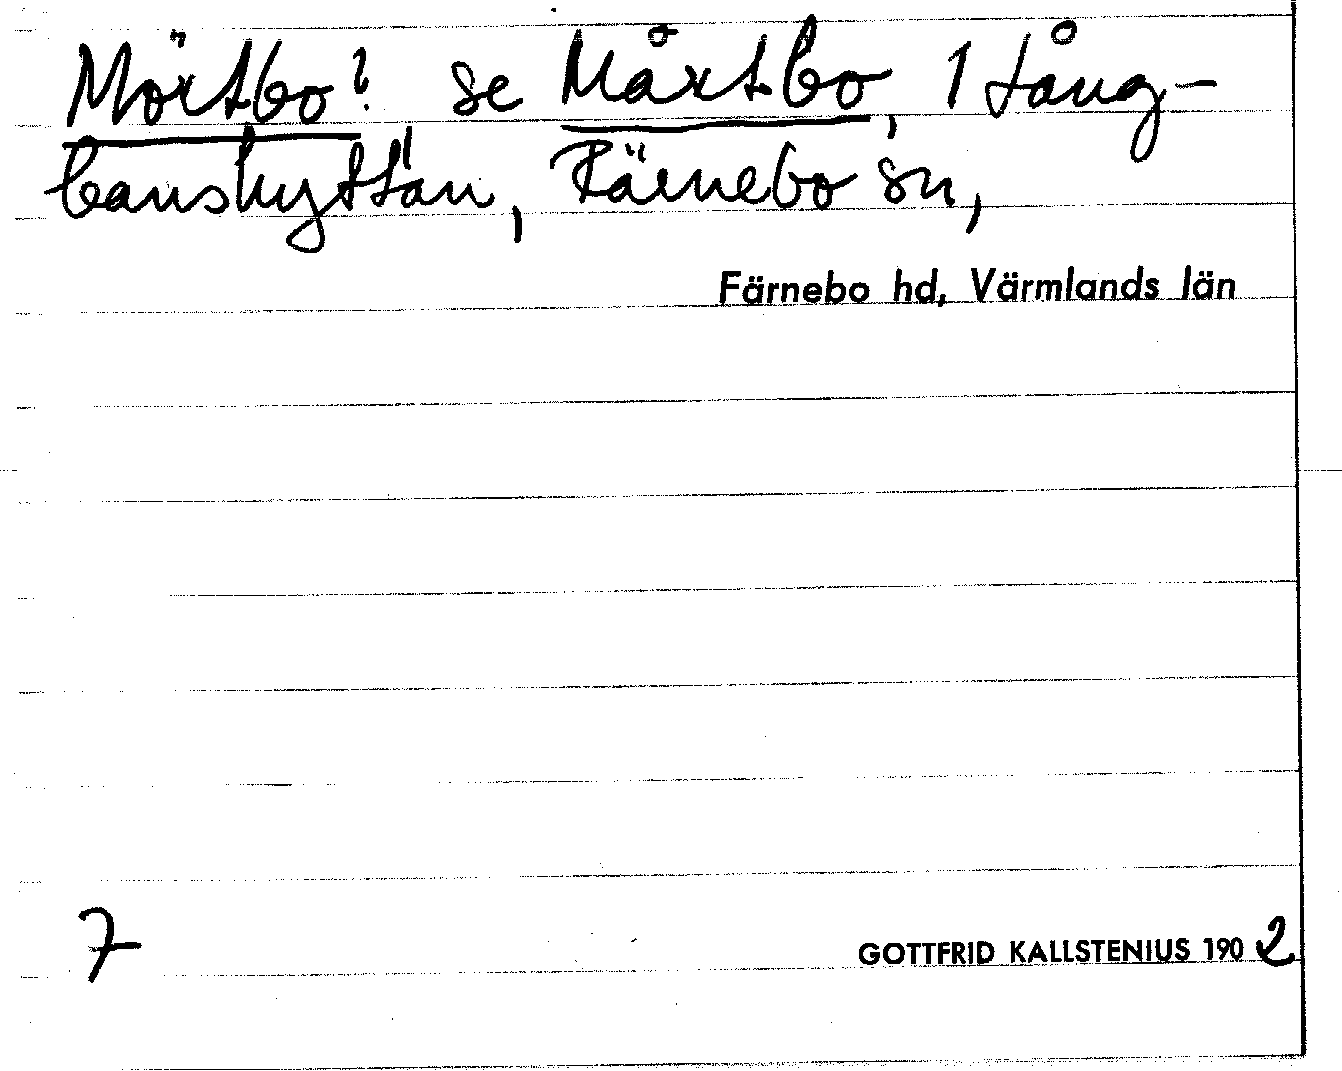 Mörtbo? se Mårtbo, 1 Lång-
banshyttan, Färnebo sn,
Färnebo hd, Värmlands län
7 GOTTFRID KALLSTENIUS 1902